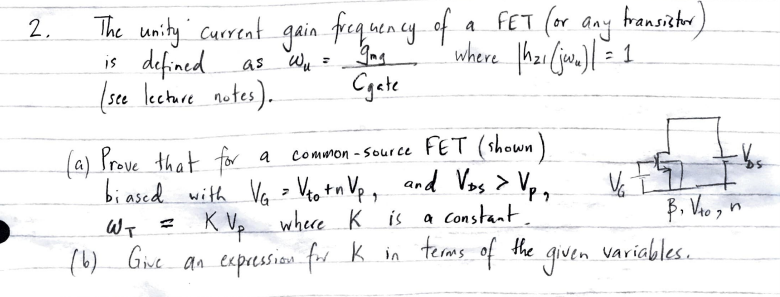 2. The unity current gain frequency of a FET (or any transistor)
is defined as ωu = gmg / Cgate where |h21(jωu)| = 1
(see lecture notes).
(a) Prove that for a common-source FET (shown)
biased with VG = Vto + nVp, and VDS > Vp,
ωT = KVp where K is a constant.
(b) Give an expression for K in terms of the given variables.
VG
VDS
β, Vto, n